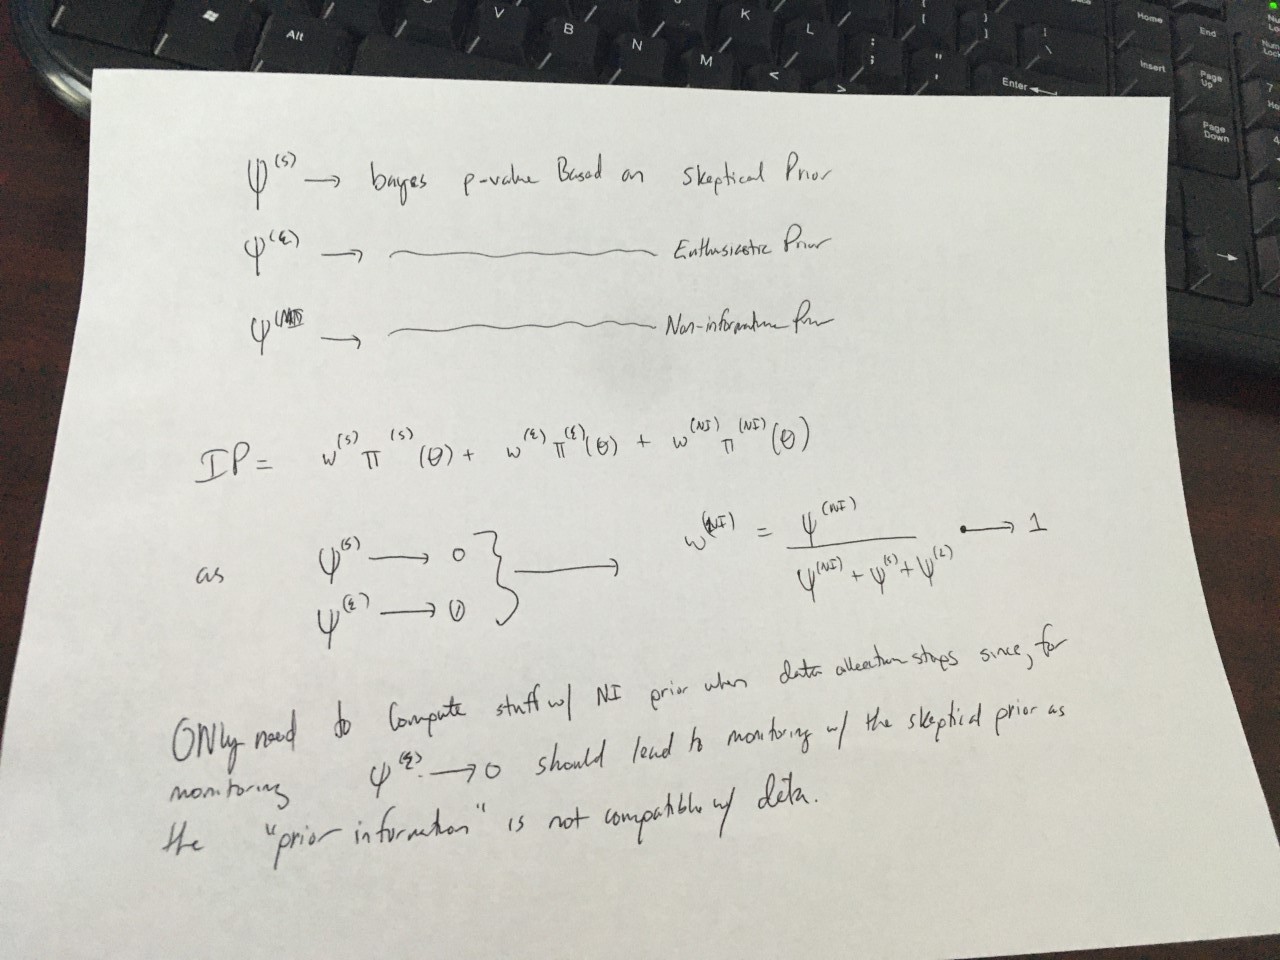 Alt
V
B
N
M
K
L
<
>
:
;
"
'
{
[
}
]
|
\
Enter
Home
End
Insert
Page Up
Page Down
Num Lock
7
4
ψ^(S) → bayes p-value Based on Skeptical Prior
ψ^(E) → Enthusiastic Prior
ψ^(NI) → Non-informative Prior
IP = w^(S) π^(S)(θ) + w^(E) π^(E)(θ) + w^(NI) π^(NI)(θ)
as ψ^(S) → 0
ψ^(E) → 0
} → w^(NI) = ψ^(NI) / (ψ^(NI) + ψ^(S) + ψ^(E)) → 1
ONly need to Compute stuff w/ NI prior when data collection stops since, for
monitoring ψ^(E) → 0 should lead to monitoring w/ the skeptical prior as
the "prior information" is not compatible w/ data.